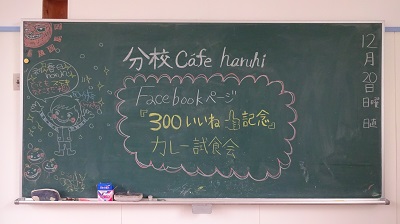 分校 Cafe haruhi
Facebookページ
『300いいね 記念』
カレー試食会
12月20日
日曜
日直